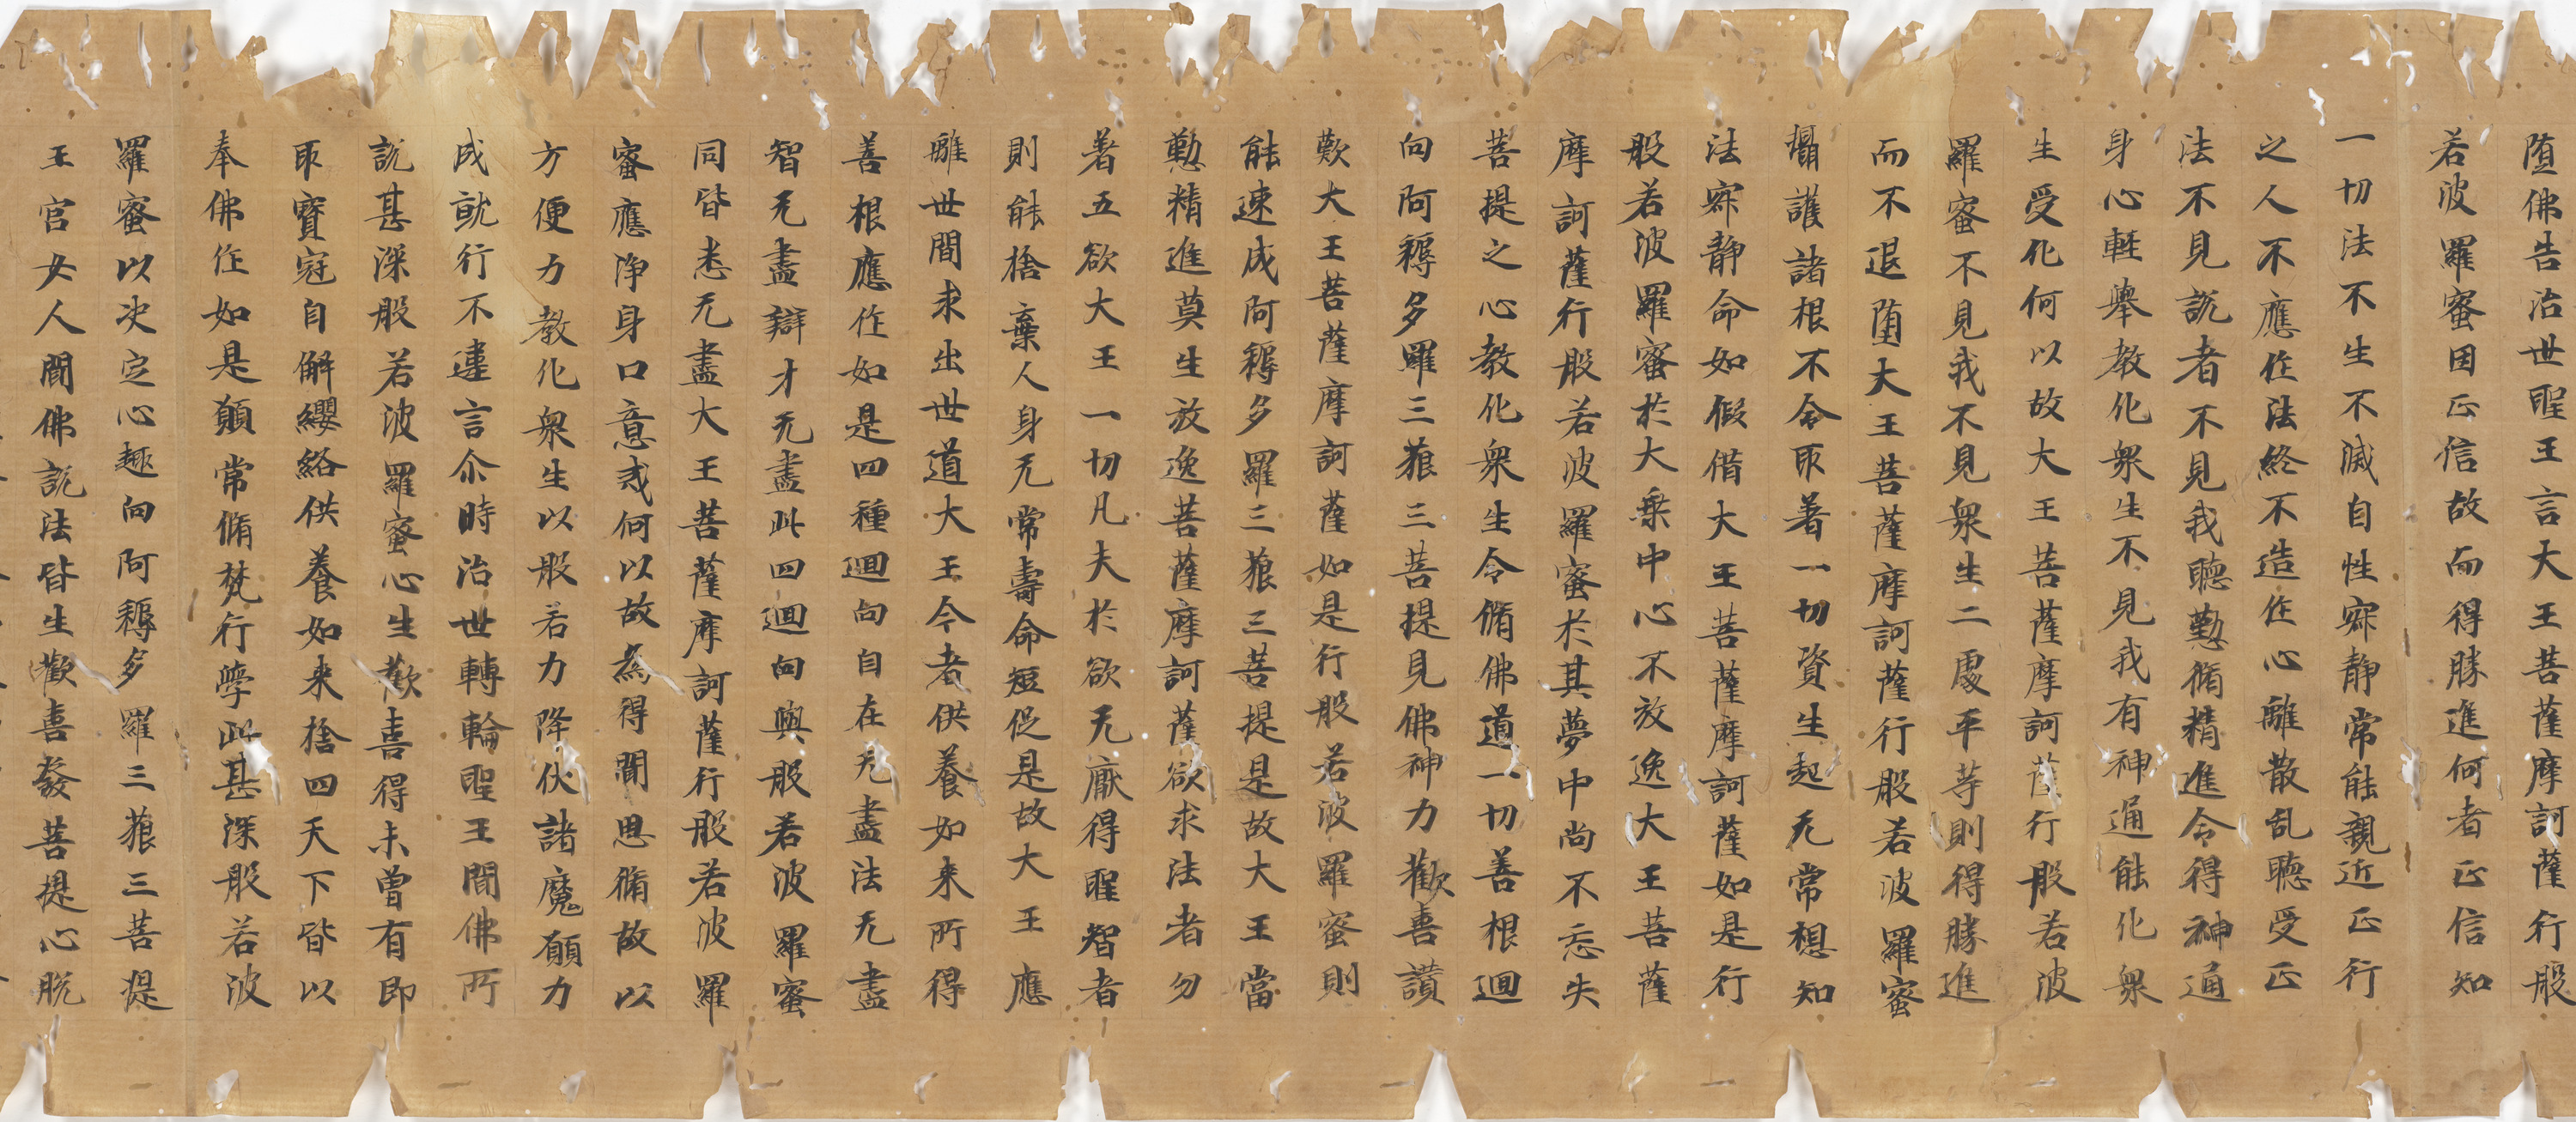 堕佛告治世聖王言大王菩薩摩訶薩行般
若波羅蜜因正信故而得勝進何者正信知
一切法不生不滅自性寂静常能親近正行
之人不應作法終不造作心離散乱聽受正
法不見説者不見我聽懃脩精進令得神通
身心輕舉教化衆生不見我有神通能化衆
生受化何以故大王菩薩摩訶薩行般若波
羅蜜不見我不見衆生二處平等則得勝進
而不退堕大王菩薩摩訶薩行般若波羅蜜
攝護諸根不令取著一切資生起无常想知
法寂静命如假借大王菩薩摩訶薩如是行
般若波羅蜜於大乘中心不放逸大王菩薩
摩訶薩行般若波羅蜜於其夢中尚不忘失
菩提之心教化衆生令脩佛道一切善根迴
向阿耨多羅三藐三菩提見佛神力歡喜讃
歎大王菩薩摩訶薩如是行般若波羅蜜則
能速成阿耨多羅三藐三菩提是故大王當
懃精進莫生放逸菩薩摩訶薩欲求法者勿
著五欲大王一切凡夫於欲无厭得聖智者
則能捨棄人身无常壽命短促是故大王應
離世間求出世道大王今者供養如来所得
善根應作如是四種迴向自在无盡法无盡
智无盡辯才无盡此四迴向與般若波羅蜜
同皆悉无盡大王菩薩摩訶薩行般若波羅
蜜應淨身口意戒何以故為得聞思脩故以
方便力教化衆生以般若力降伏諸魔願力
成就行不違言尒時治世轉輪聖王聞佛所
説甚深般若波羅蜜心生歡喜得未曾有即
取寶冠自解纓絡供養如来捨四天下皆以
奉佛作如是願常脩梵行學此甚深般若波
羅蜜以决定心趣向阿耨多羅三藐三菩提
王宫女人聞佛説法皆生歡喜發菩提心脱